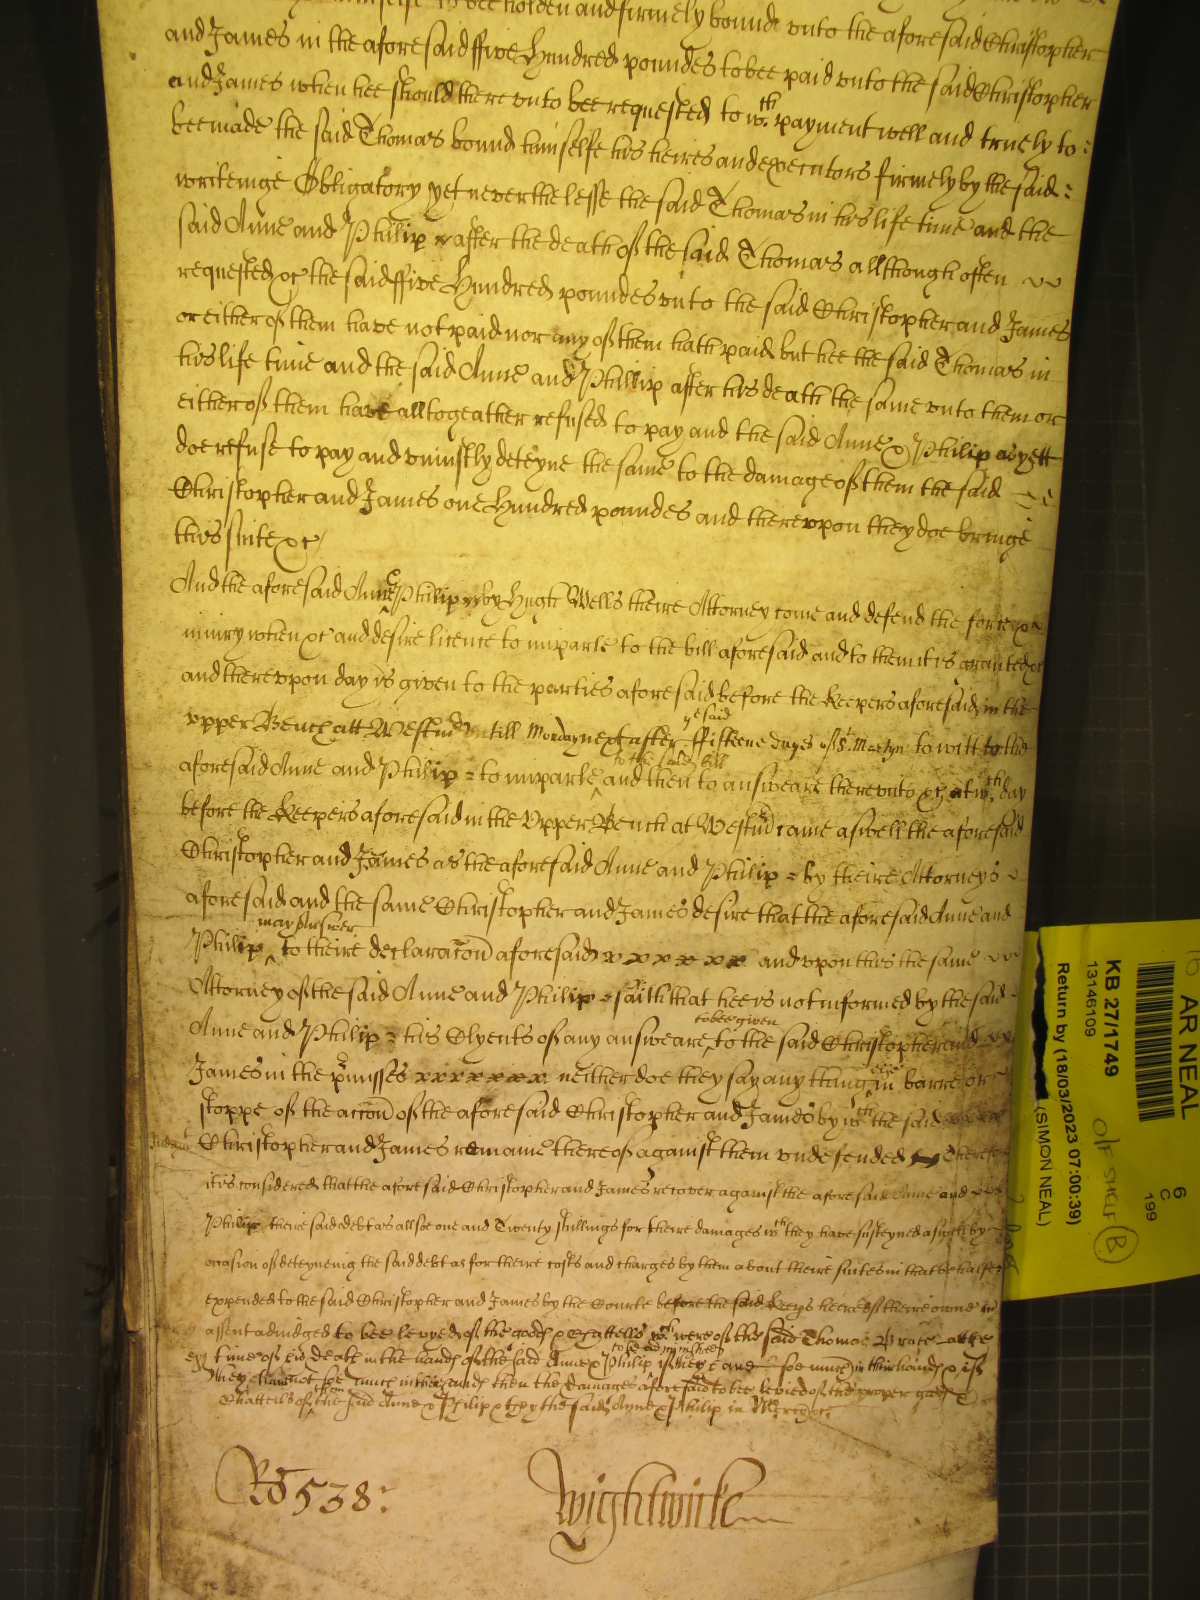 himselfe to bee holden and firmely bound vnto the aforesaid Christopher
and James in the aforesaid ffive Hundred poundes to bee paid vnto the said Christopher
and James when hee should there vnto bee requested to wch. payment well and truely to :
bee made the said Thomas bound himselfe his heires and executors firmely by the said :
writeinge Obligatory yet never the lesse the said Thomas in his life time and the
said Anne and Philip after the death of the said Thomas allthough often
requested &c the said ffive Hundred poundes vnto the said Christopher and James
or either of them have not paid nor any of them hath paid but hee the said Thomas in
his life time and the said Anne and Phillip after his death the same vnto them or
either of them have alltogeather refused to pay and the said Anne & Philip as yett
doe refuse to pay and vniustly deteyne the same to the damage of them the said
Christopher and James one Hundred poundes and therevpon they doe bringe
this suite &c
And the aforesaid Anne & Philip by Hugh Wells theire Attorney come and defend the force &
iniury when &c and desire licence to imparle to the bill aforesaid and to them it is graunted &c
and therevpon day is given to the parties aforesaid before the Keepers aforesaid in the
vpper Bench att Westm till Monday next after ffifteene dayes of St. Martyn to witt to the
ye said
aforesaid Anne and Philip to imparle to the said bill and then to answeare therevnto &c at wch. day
before the Keepers aforesaid in the Vpper Bench at Westm came aswell the aforesaid
Christopher and James as the aforesaid Anne and Philip by theire Attorneys
aforesaid and the same Christopher and James desire that the aforesaid Anne and
Philip may Answer to theire declaracon aforesaid x x x x x x and vpon this the same
Attorney of the said Anne and Philip saith that hee is not informed by the said
Anne and Philip his Clyents of any answeare to bee given to the said Christopher and
James in the pmisses xxxxxxx neither doe they say any thing else in barre or
stoppe of the accon of the aforesaid Christopher and James by wch the said
Christopher and James remaine thereof against them vndefended Therefore
it is considered that the aforesaid Christopher and James recover against the aforesaid Anne and
Philip theire said debt as allsoe one and Twenty shillings for theire damages wch they have susteyned aswell by
occasion of deteyneing the said debt as for theire costs and charges by them about theire suite in that behalfe
expended to the said Christopher and James by the Courte before the said Keeps here of theire owne
assent adiudged to bee levyed of the goods & Chattells wch were of the said Thomas att the
time of his death in the hands of the said Anne & Philip to be administred if they have soe much in their hands & if
they have not soe much in their hands then the damages aforesaid to bee levied of the proper goods &
Chattells of them the said Anne & Philip & the said Anne & Philip in Mercy &c.
Ro 538:
Wightwicke
AR NEAL
KB 27/1749
13146109
Return by (18/03/2023 07:00:39)
(SIMON NEAL)
O/F SHELF
B
6
C
199